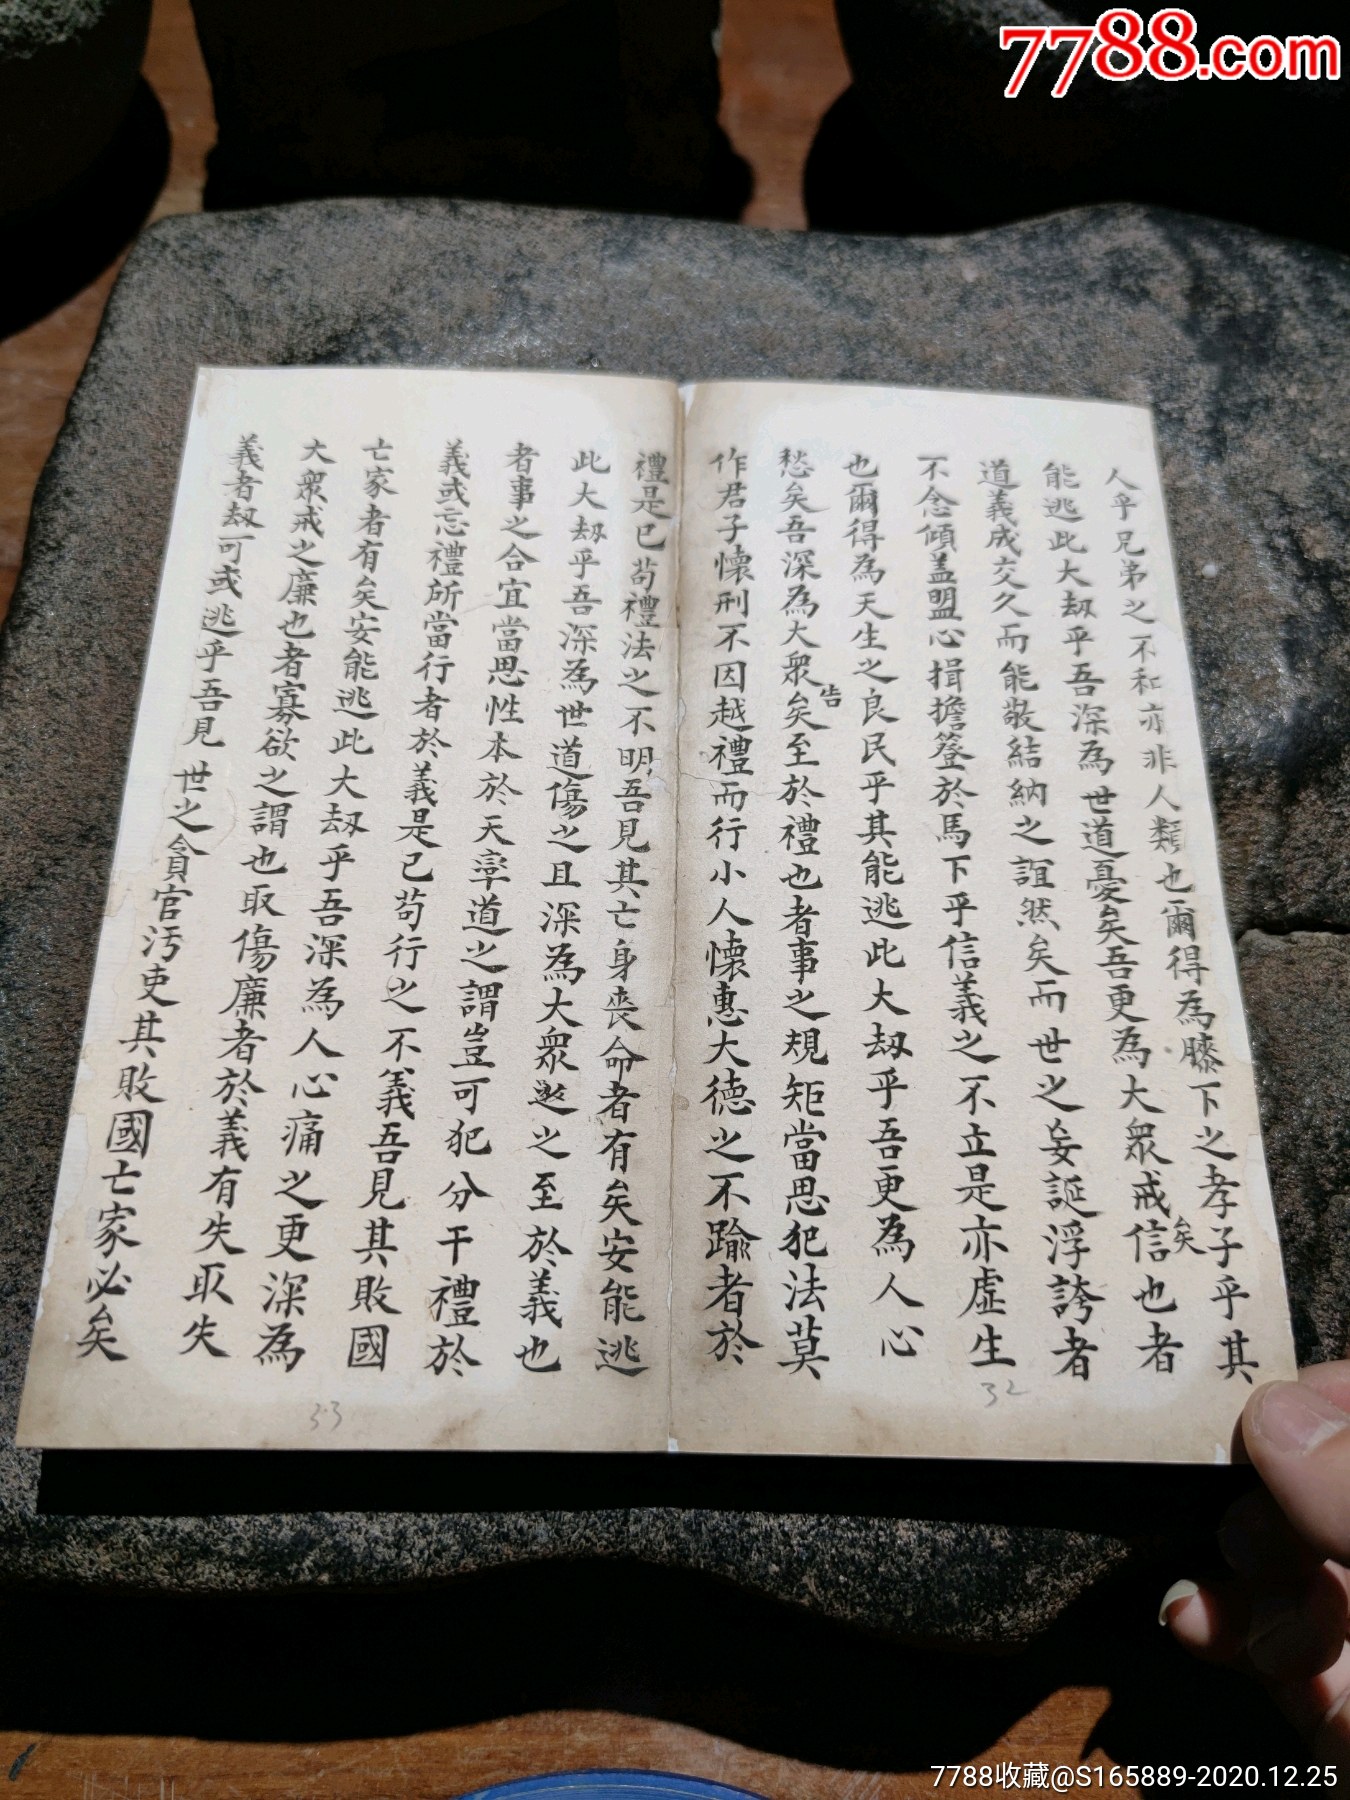 7788.com
人乎兄弟之不和亦非人類也爾得為膝下之孝子乎其
能逃此大劫乎吾深為世道憂矣吾更為大眾戒矣信也者
道義成交久而能敬結納之誼然矣而世之妄誕浮誇者
不念傾盖盟心揖擔簦於馬下乎信義之不立是亦虛生
也爾得為天生之良民乎其能逃此大劫乎吾更為人心
愁矣吾深為大眾告矣至於禮也者事之規矩當思犯法莫
作君子懷刑不因越禮而行小人懷惠大德之不踰者於
禮是已苟禮法之不明吾見其亡身喪命者有矣安能逃
此大劫乎吾深為世道傷之且深為大眾悲之至於義也
者事之合宜當思性本於天率道之謂豈可犯分干禮於
義或忘禮所當行者於義是已苟行之不義吾見其敗國
亡家者有矣安能逃此大劫乎吾深為人心痛之更深為
大眾戒之廉也者寡欲之謂也取傷廉者於義有失取失
義者劫可或逃乎吾見世之貪官汚吏其敗國亡家必矣
32
33
7788收藏@S165889-2020.12.25